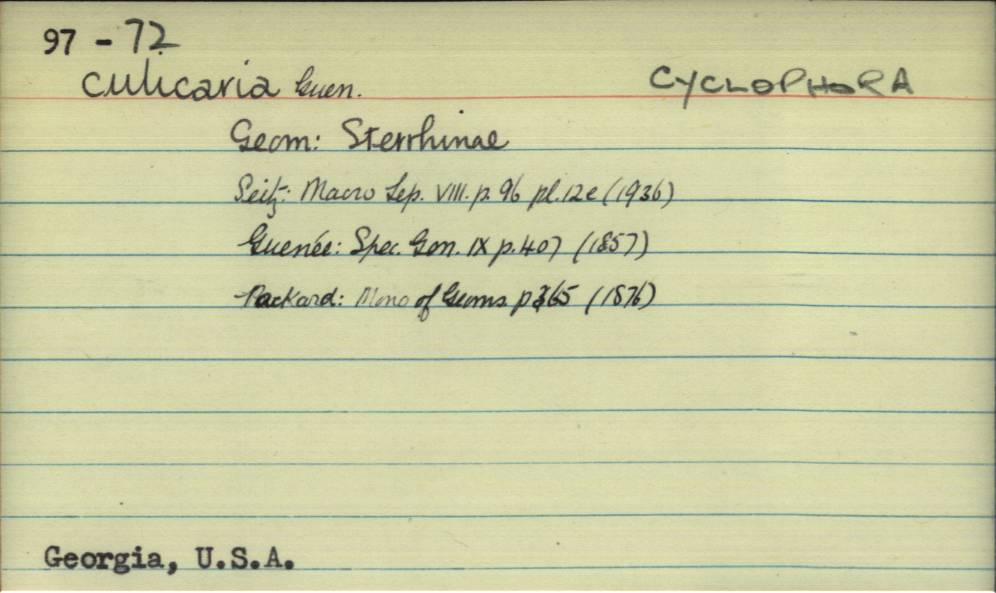 97 - 72
culicaria Guen. CYCLOPHORA
Geom: Sterrhinae
Seitz: Macro Lep. VIII. p. 96 pl. 12e (1936)
Guenée: Spec. Gen. IX p. 407 (1857)
Packard: Mono of Geoms p 365 (1876)
Georgia, U.S.A.